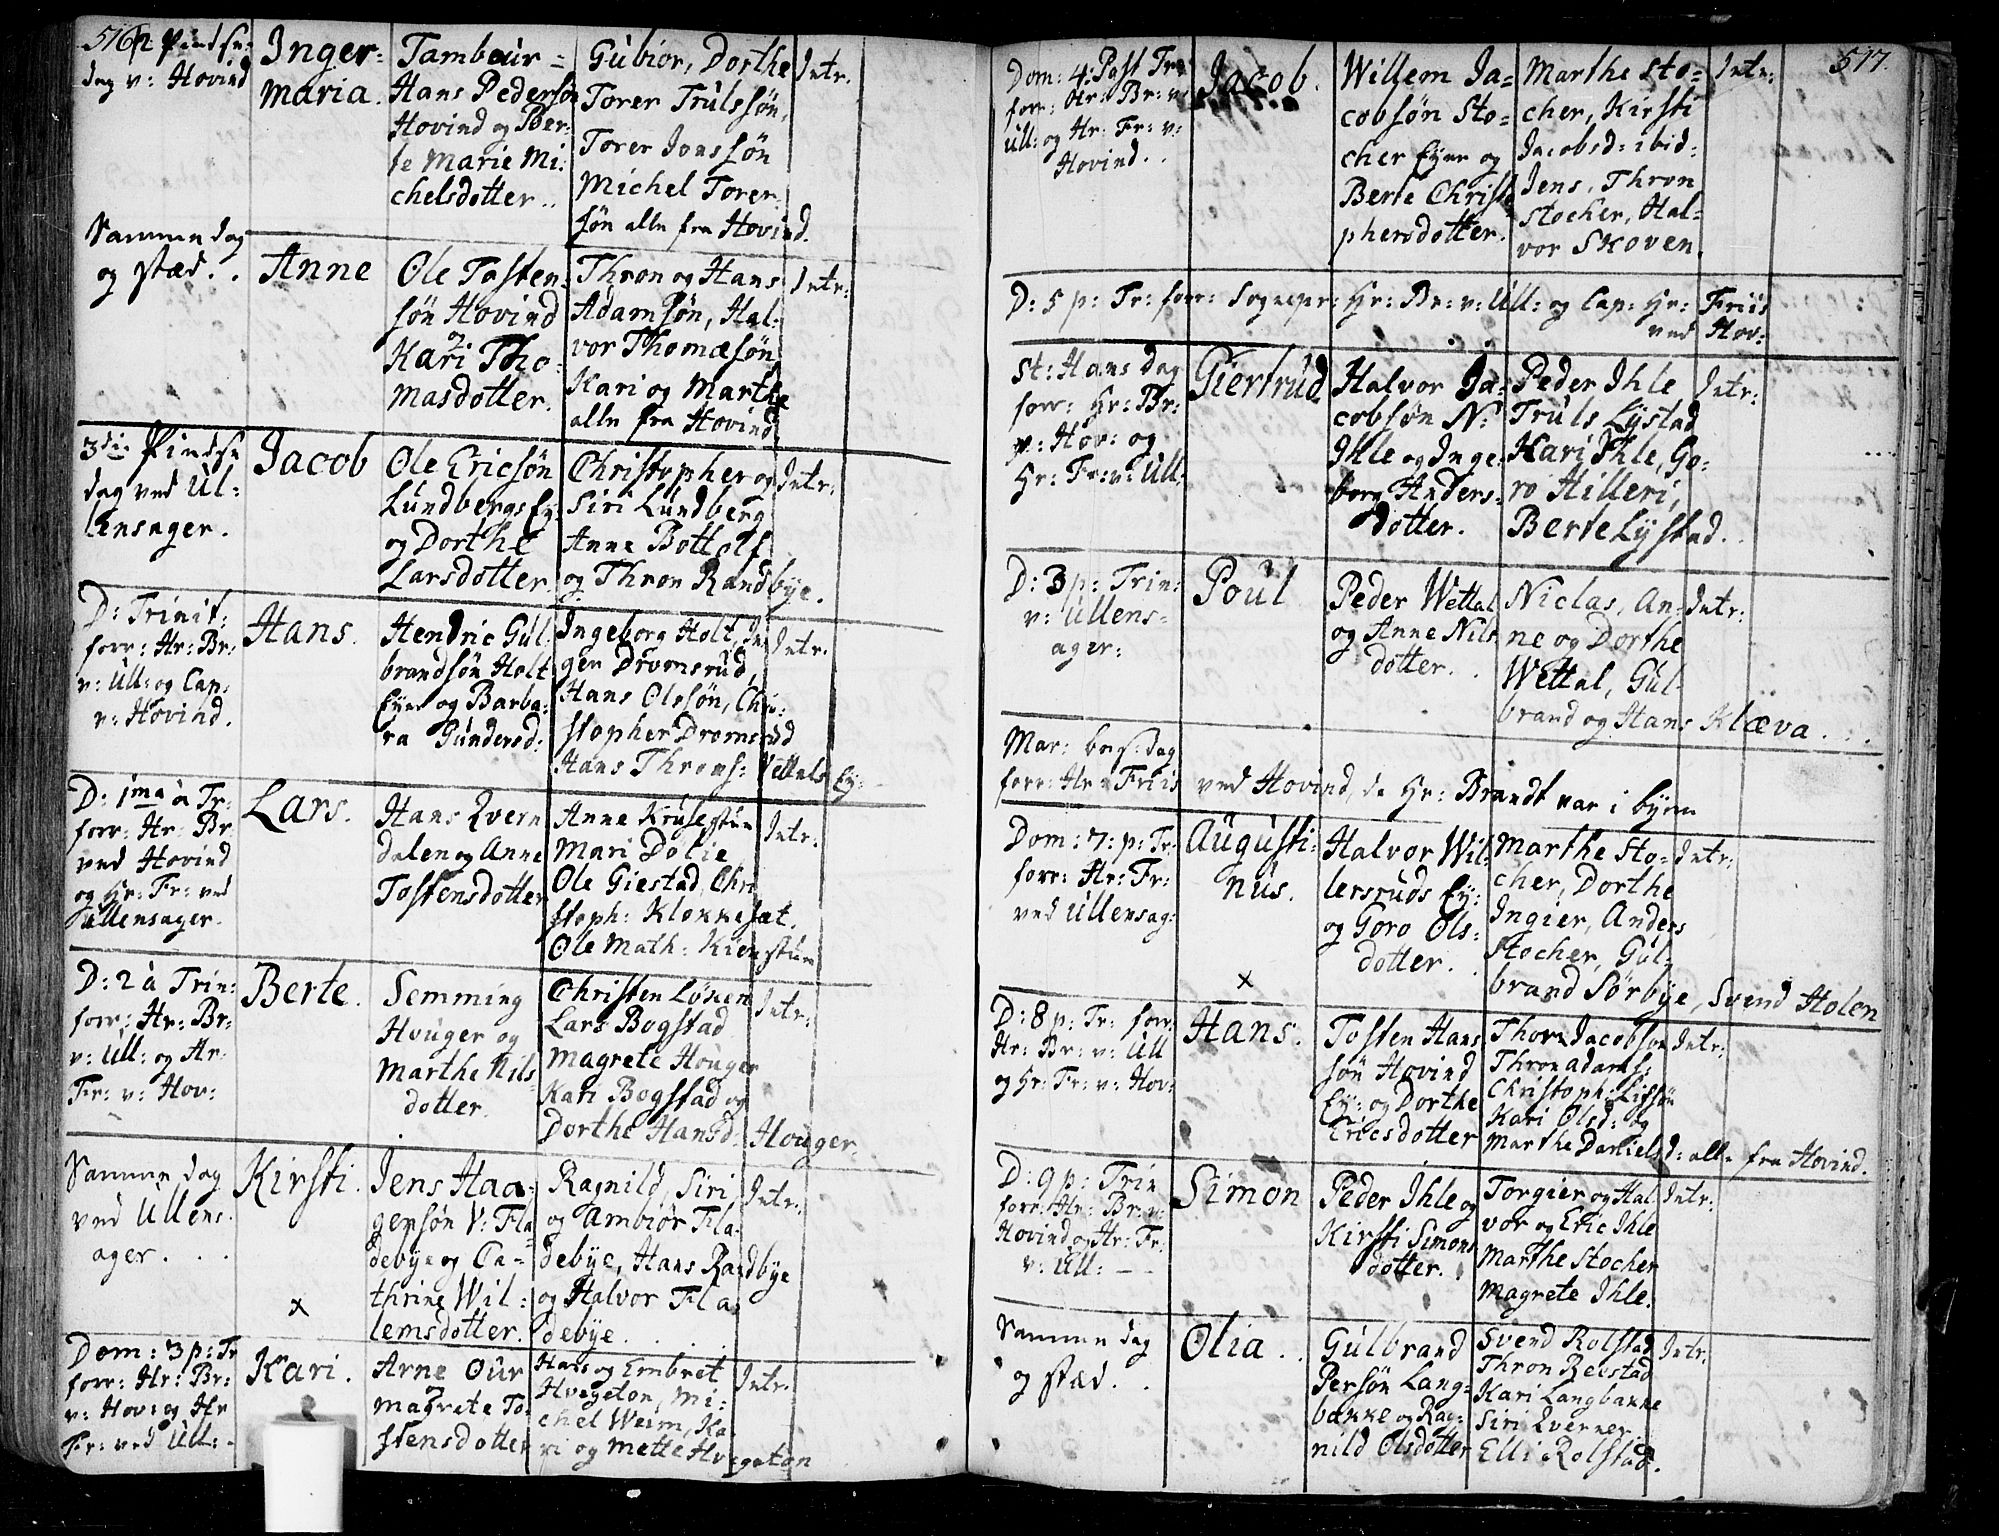 516
2 Pindse-
dag v: Hovind
Inger-
Maria.
Tambour-
Hans Pedersøn
Hovind og Ber-
te Marie Mi-
chelsdotter..
Gubior, Dorthe
Torer Trulssøn,
Torer Jonssøn
Michel Torer-
søn alle fra Hovind.
Intr.
Sammen dag
og stæd..
Anne
Ole Tosten-
søn Hovind
og
Kari Tho-
masdotter.
Thron og Hans
Adamsøn, Hal-
vor Thomæsøn
Kari og Marthe
alle fra Hovind
Intr:
3die Pindse
dag ved Ul-
lensager.
Jacob
Ole Ericsøn
Lundbergs Ey:
og Dorthe
Larsdotter
Christopher og
Siri Lundberg
Anne Bottolf
og Thron Randbye.
Intr:
D: Trinit:
forr: Hr: Br:
v: Ull: og Cap:
v: Hovind.
Hans.
Hendric Gul-
brandsøn Holt
Eyer og Barba-
ra Gundersd:
Ingeborg Holt, In-
ger Dromsrud,
Hans Olssøn, Chri-
stopher Dromsrud
Hans Throns: Vettals Ey:
Intr.
D: 1ma à Tr:
forr: Hr: Br
ved Hovind
og Hr: Fr: ved
Ullensager.
Lars.
Hans Qvern
dalen og Anne
Tostensdotter
Anne Krusestuen
Mari Dølie
Ole Giestad, Chri
stoph: Klokkesæt.
Ole Math: Kienstuen
Intr:
D: 2 à Trin:
forr: Hr: Br:
v: Ull: og Hr:
Fr: v: Hov:
Berte.
Semming
Houger og
Marthe Nils-
dotter.
Christen Løken
Lars Bogstad
Magrete Houger
Kari Bogstad og
Dorthe Hansd: Houger.
Intr:
Sammen dag
ved Ullens-
ager...
Kirsti.
x
Jens Haa-
gensøn V: Fla
debye og Ca-
thrine Wil-
lemsdotter.
Ragnild, Siri
og Ambior Fla-
debye, Hans Randbye
og Halvor Fla
debye....
Intr:
Dom: 3 p: Tr
forr: Hr: Br:
v: Hov: og Hr
Fr: ved Ull:
Kari.
Arne Our
og
Magrete To-
stensdotter
Hans og Embret
Hvegeton, Mi-
chel Weim, Ka
ri og Mette Hvegeton
Intr:
517.
Dom: 4: Post Tr:
forr: Hr: Br: v:
Ull: og Hr: Fr: v:
Hovind..
Jacob.
Willem Ja-
cobsøn Sto-
cher Eyer og
Berte Christo
phersdotter.
Marthe Sto-
cher, Kirsti
Jacobsd: ibid:
Jens, Thron
Stocher, Hal-
vor Skoven.
Intr:
D: 5 p: Tr: forr: Sognepr: Hr: Br: v: Ull: og Cap: Hr: Friis
ved Hov:
St: Hans dag
forr: Hr: Br:
v: Hov: og
Hr: Fr: v: Ull:
Giertrud
Halvor Ja-
cobsøn N:
Ihle og Inge
borg Anders-
dotter.
Peder Ihle
Truls Lystad
Kari Ihle, Go-
ro Hilleri,
Berte Lystad.
Intr:
D: 3 p: Trin:
v: Ullens-
ager:
Poul
Peder Wettal
og Anne Nils
dotter..
Niclas, An-
ne og Dorthe
Wettal, Gul-
brand og Hans Klæva...
Intr:
Mar: bes: dag
forr: Hr: Friis ved Hovind, da Hr: Brandt var i byen
Dom: 7: p: Tr:
forr: Hr: Fr:
ved Ullensag:
Augusti-
nus.
x
Halvor Wil-
lersruds Ey:
og Goro Ols-
dotter.
Marthe Sto-
cher, Dorthe
Ingier, Anders
Stocher, Gul-
brand Sørbye, Svend Holen
Intr:
D: 8 p: Tr: forr:
Hr: Br: v: Ull
og Hr: Fr: v: Hov:
Hans.
Tosten Hans
søn Hovind
Ey: og Dorthe
Ericsdotter
Thor Jacobsøn
Thron Adams:
Christoph: Lifsøn
Kari Olsd: og
Marthe Danielsd: alle fra Hovind.
Intr:
D: 9 p: Trin
forr: Hr: Br: v:
Hovind og Hr: Fr:
v: Ull:
Simon
Peder Ihle og
Kirsti Simons
dotter.
Torgier og Hal
vor og Eric Ihle
Marthe Stocher
Magrete Ihle.
Intr:
Sammen dag
og stæd..
Olia..
Gulbrand
Persøn Lang-
bakke og Rag-
nild Olsdotter
Svend Rolstad
Thron Reestad
Kari Langbakke
Siri Qverner
Elli Rolstad.
Intr: